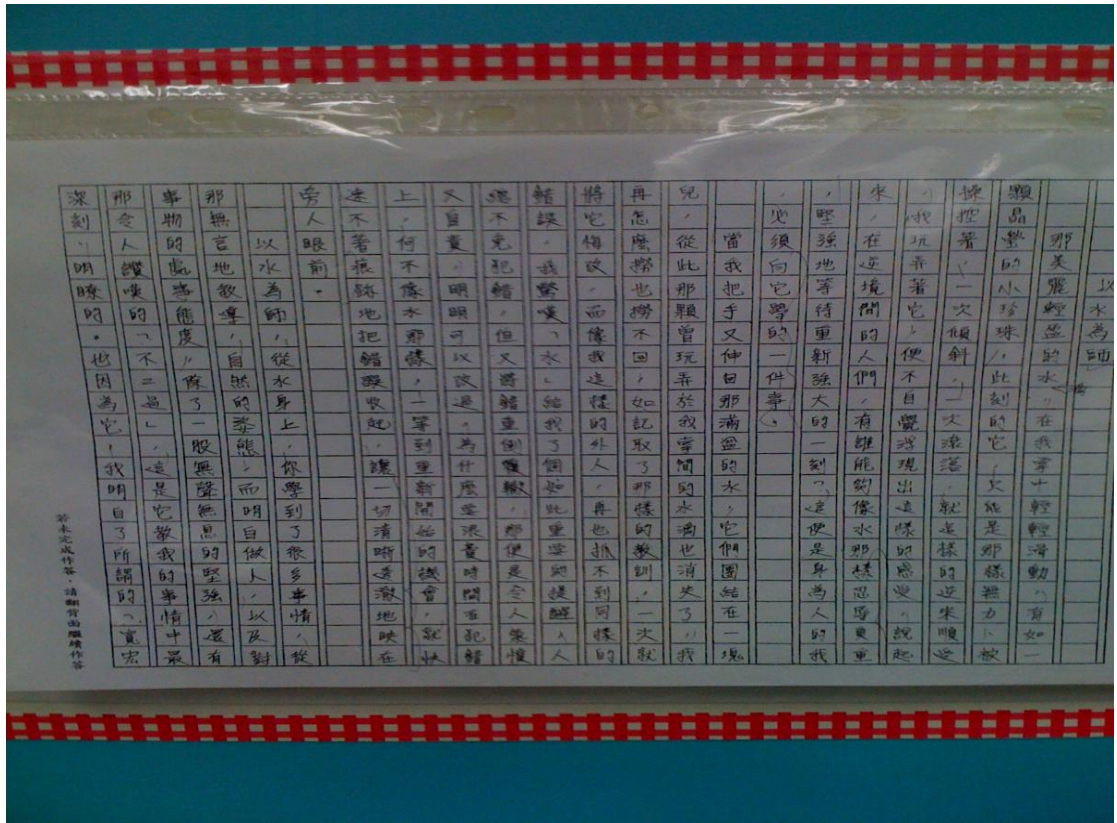 以水為師
那美麗輕盈的水,在我掌中輕輕滑動,有如一
顆晶瑩的小珍珠,此刻的它,只能是那樣無力、被
操控著,一次傾斜,一次滾落,就這樣的逆來順受
,我玩弄著它,便不自覺浮現出這樣的感受,說起
來,在逆境間的人們,有誰能夠像水那樣忍辱負重
,堅強地等待重新強大的一刻?這便是身為人的我
,必須向它學的一件事。
當我把手又伸回那滿盈的水,它們團結在一塊
兒,從此那顆曾玩弄於我掌間的水滴也消失了,我
再怎麼撈也撈不回,如記取了那樣的教訓,一次就
將它悔改,而像我這樣的外人,再也抓不到同樣的
錯誤。我驚嘆「水」給我了個如此重要的提醒,人
總不免犯錯,但又錯重倒覆轍,那便是令人氣憤
又自責,明明可以改過,為什麼要浪費時間,犯錯
上,何不像水那樣,一到重新開始的機會,就快
速不著痕跡地把錯誤收起,讓一切清晰透澈地映在
旁人眼前。
以水為師,從水身上,你學到了很多事情,從
那無言地教導,自然的姿態,而明白做人,以及對
事物的處事態度,除了一股無聲無息的堅強,還有
那令人讚嘆的「不二過」,這是它教我的事情中最
深刻,明瞭的。也因為它,我明白了所謂的「寬宏
若未完成作答,請翻背面繼續作答